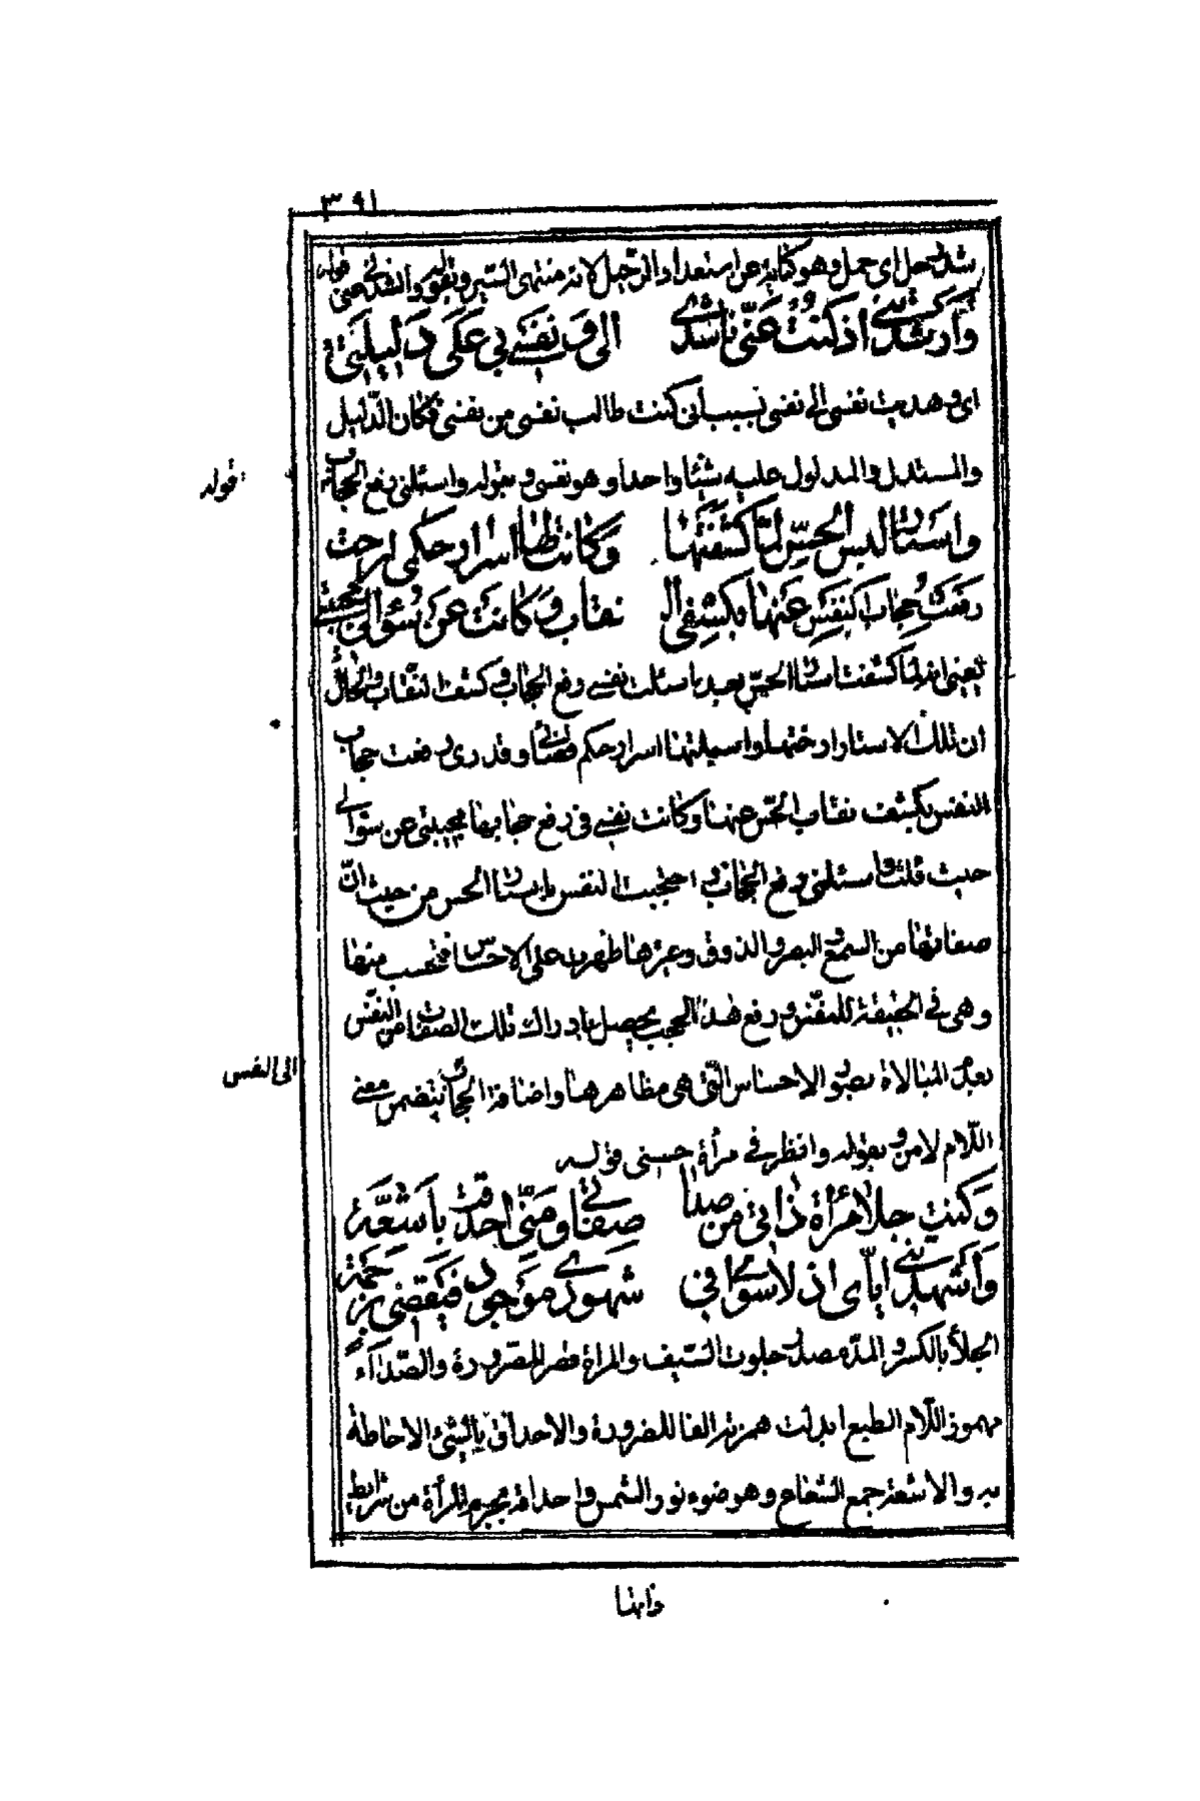 ٣٩١
شد الرحل اى حمل وهو كناية عن استعداد الرحيل لانه منتهى السير وبقوله وانشدنى عنى قوله
وارشدتني اذ كنت عنّي ناشدي الى و نفسي بي علىّ دليلتي
اى وهديت نفسى الى نفسى بسبب أنى كنت طالب نفسى من نفسى فكان الدليل
والمستدل والمدلول عليه شيئا واحدا وهو نفسى و بقوله واسئلنى رفع الحجاب
قوله
واستار لبس الحسّ لمّا كشفتها وكانت لها اسرار حكمى ارخت
رفعت حجاب النفس عنها بكشفى الـ نقاب وكانت عن سؤالى مجيبتي
يعنى انه لما كشفت استار الحسّ بعد ما سئلت نفسى رفع الحجاب وكشف النقاب والحال
ان تلك الاستار ارختها واسبلتها اسرار حكم قضائى وقدرى رفعت حجاب
النفس بكشف نقاب الحسّ عنها وكانت نفسى فى رفع حجابها مجيبتى عن سؤالى
حيث قلت واسئلنى رفع الحجاب و احتجبت النفس باستار الحس من حيث انّ
صفاتها من السمع والبصر والذوق وغيرها ظهرت على الاحساس فتنسب منها
وهى فى الحقيقة للنفس ورفع هذا الحجب يحصل بادراك تلك الصفات من النفس
بعد المبالاة بصور الاحساس الّتى هى مظاهرها واضافة الحجاب تتضمن معنى
الى النفس
اللام لا من وبقوله وانظر فى مرآة حسنى قوله
وكنت جلا مرآة ذاتي من صدا صفاتي ومنّي احدقت باشعّة
واشهدتني ايّاى اذ لا سواى في شهودى موجود فيقضى بزحمة
الجلأ بالكسر والمدّ مصدر جلوت السّيف والمراة قصر للضرورة والصّداء
مهموز اللّام الطبع ابدلت همزته الفا للضرورة والاحداق بالشئ الاحاطة
به والاشعة جمع الشعاع وهو ضوء نور الشمس واحداقه بجرم المرأة من شرايط